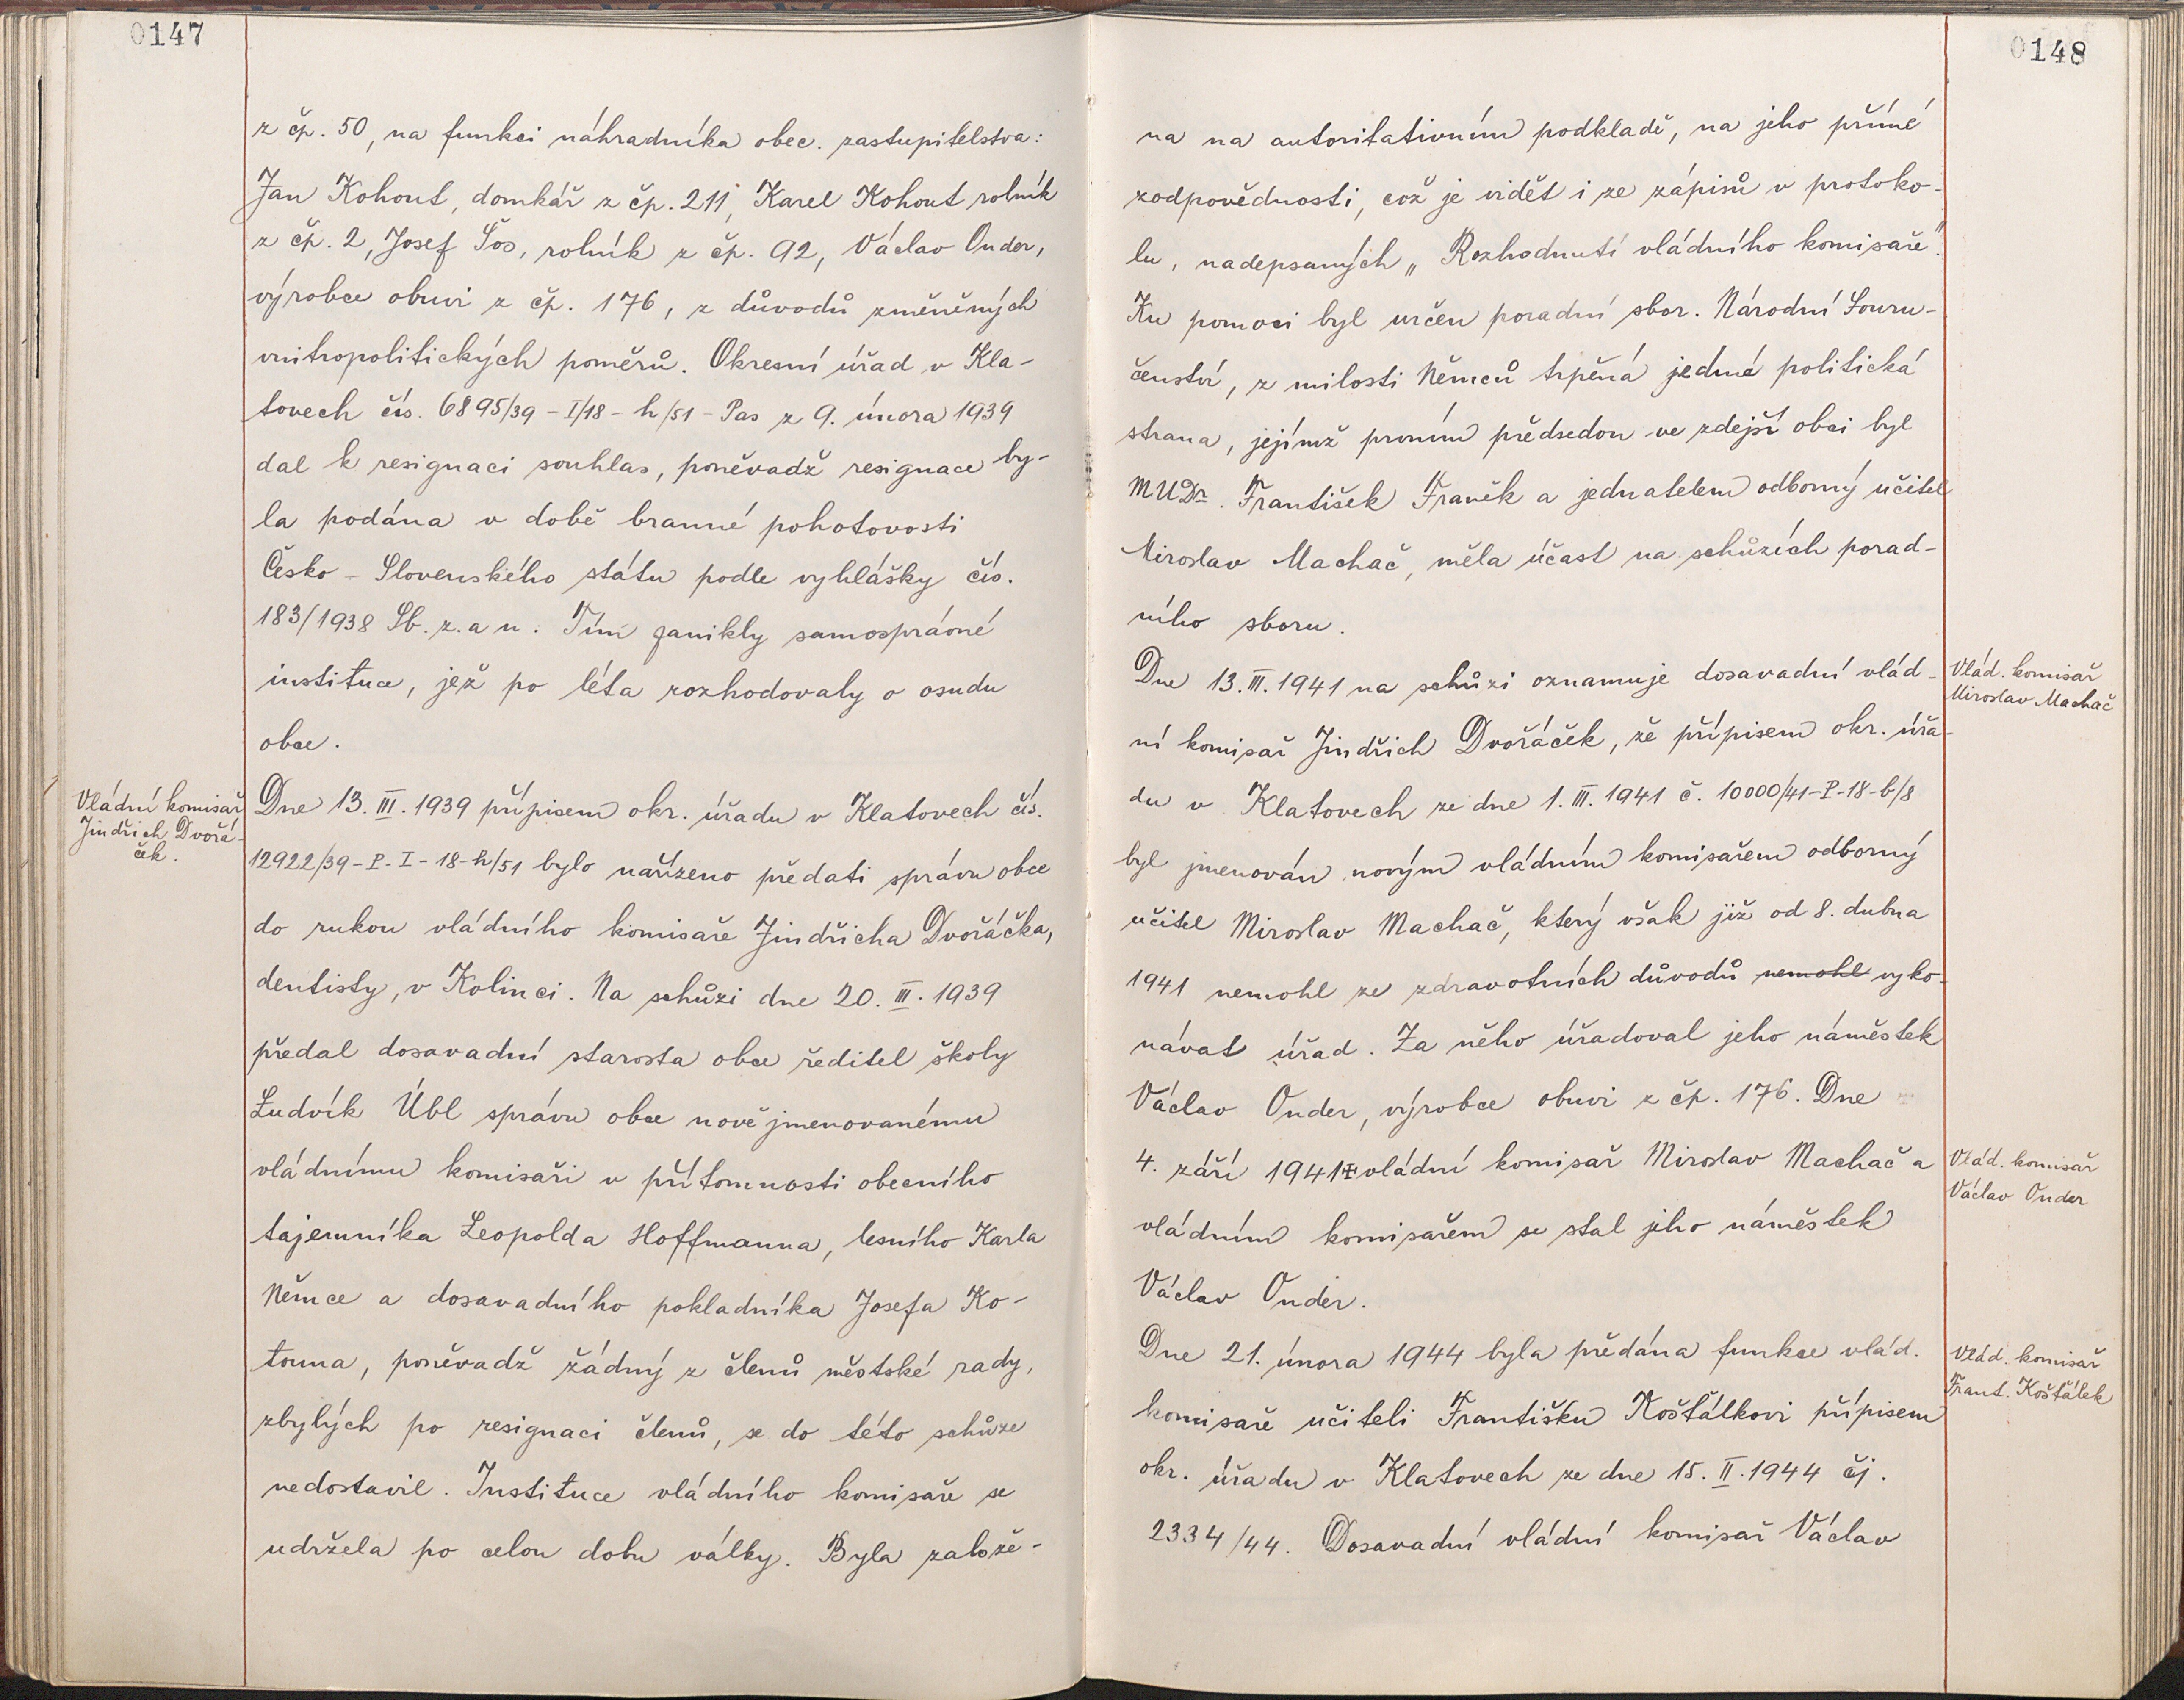 0147
z čp. 50, na funkci náhradníka obec. zastupitelstva:
Jan Kohout, domkář z čp. 211, Karel Kohout rolník
z čp. 2, Josef Šos, rolník z čp. 92, Václav Onder,
výrobce obuvi z čp. 176, z důvodů změněných
vnitropolitických poměrů. Okresní úřad v Kla-
tovech čís. 6895/39-I/18-h/51-Pas z 9. února 1939
dal k resignaci souhlas, poněvadž resignace by-
la podána v době branné pohotovosti
Česko-Slovenského státu podle vyhlášky čís.
183/1938 Sb. z. a n. Tím zanikly samosprávné
instituce, jež po léta rozhodovaly o osudu
obce.
Vládní komisař
Jindřich Dvořá-
ček.
Dne 13. III. 1939 přípisem okr. úřadu v Klatovech čís.
12922/39-P-I-18-h/51 bylo nařízeno předati správu obce
do rukou vládního komisaře Jindřicha Dvořáčka,
dentisty, v Kolinci. Na schůzi dne 20. III. 1939
předal dosavadní starosta obce ředitel školy
Ludvík Übl správu obce nově jmenovanému
vládnímu komisaři v přítomnosti obecního
tajemníka Leopolda Hoffmanna, lesního Karla
Němce a dosavadního pokladníka Josefa Ko-
touna, poněvadž žádný z členů městské rady,
zbylých po resignaci členů, se do této schůze
nedostavil. Instituce vládního komisaře se
udržela po celou dobu války. Byla založe-
0148
na na autoritativním podkladě, na jeho přímé
zodpovědnosti, což je vidět i ze zápisů v protoko-
lu, nadepsaných „Rozhodnutí vládního komisaře".
Ku pomoci byl určen poradní sbor. Národní Souru-
čenství, z milosti Němců trpěná jediná politická
strana, jejímž prvním předsedou ve zdejší obci byl
MUDr. František Franěk a jednatelem odborný učitel
Miroslav Machač, měla účast na schůzích porad-
ního sboru.
Dne 13. III. 1941 na schůzi oznamuje dosavadní vlád-
Vlád. komisař
Miroslav Machač
ní komisař Jindřich Dvořáček, že přípisem okr. úřa-
du v Klatovech ze dne 1. III. 1941 č. 10000/41-P-18-b/8
byl jmenován novým vládním komisařem odborný
učitel Miroslav Machač, který však již od 8. dubna
1941 nemohl ze zdravotních důvodů nemohl vyko-
návat úřad. Za něho úřadoval jeho náměstek
Václav Onder, výrobce obuvi z čp. 176. Dne
4. září 1941 ✠ vládní komisař Miroslav Machač a
Vlád. komisař
Václav Onder
vládním komisařem se stal jeho náměstek
Václav Onder.
Dne 21. února 1944 byla předána funkce vlád.
Vlád. komisař
Frant. Košťálek
komisaře učiteli Františku Košťálkovi přípisem
okr. úřadu v Klatovech ze dne 15. II. 1944 čj.
2334/44. Dosavadní vládní komisař Václav